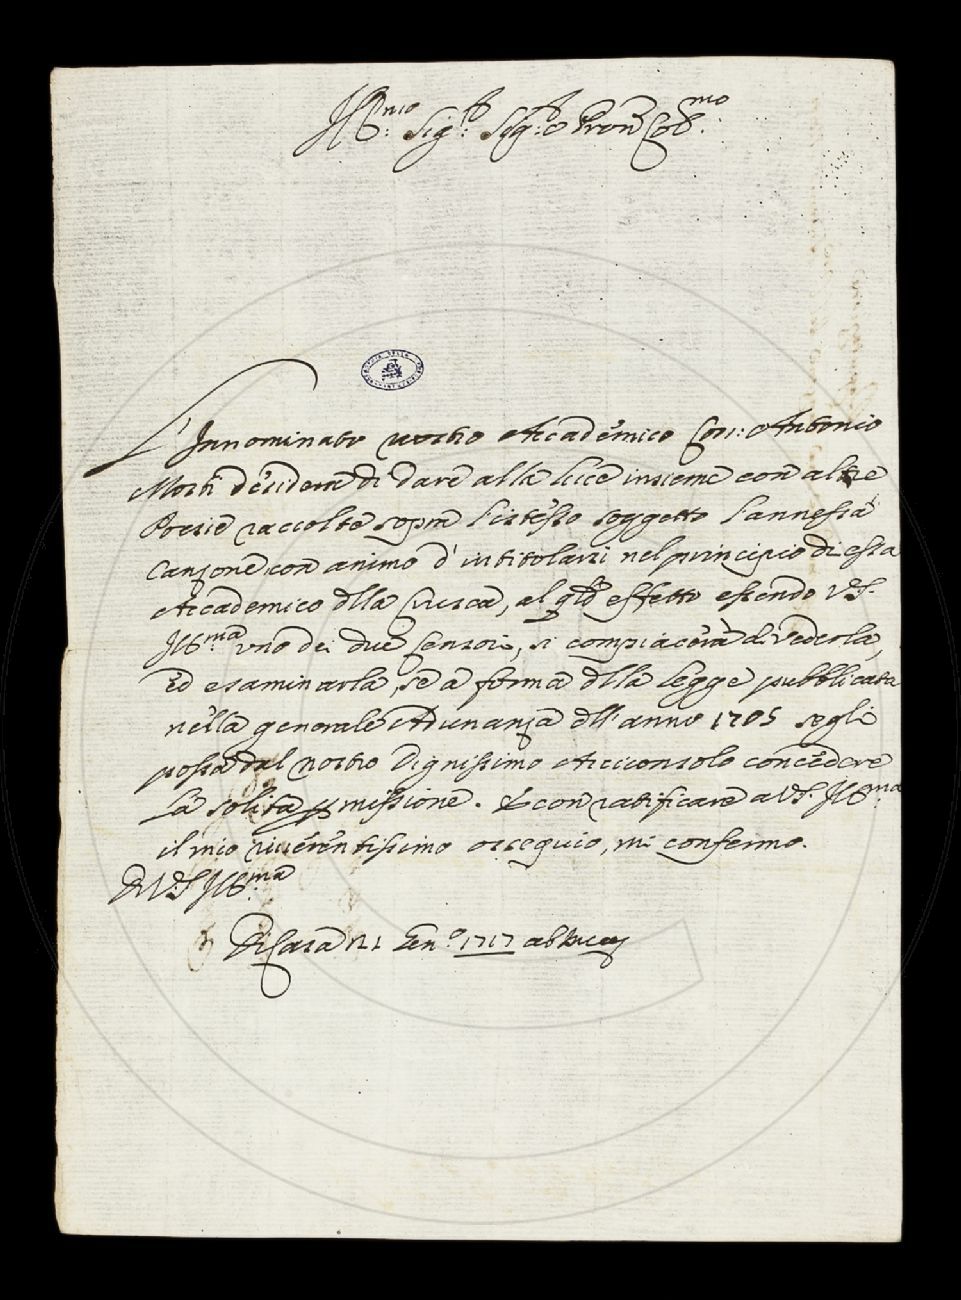 Ill:mo Sig:r Sig:r e Pron Col:mo
L'Innominato nostro Accademico Con: Antonio
Morti desidera di dare alla luce insieme con altre
Poesie raccolte sopra l'istesso soggetto l'annessa
Canzone con animo d'intitolarsi nel principio di essa
Accademico della Crusca, al qle effetto essendo VS.
Ill:ma uno dei due Censori, si compiacerà di vederla,
ed esaminarla, se a forma della Legge pubblicata
nella generale Adunanza dell'anno 1705 segli
possa dal nostro Dignissimo Arciconsolo concedere
la solita pmissione. E con ratificare a VS. Ill:ma
il mio riverentissimo ossequio, mi confermo.
Di VS Ill:ma
Di Casa 21 Gen:o 1717 ab Inc.